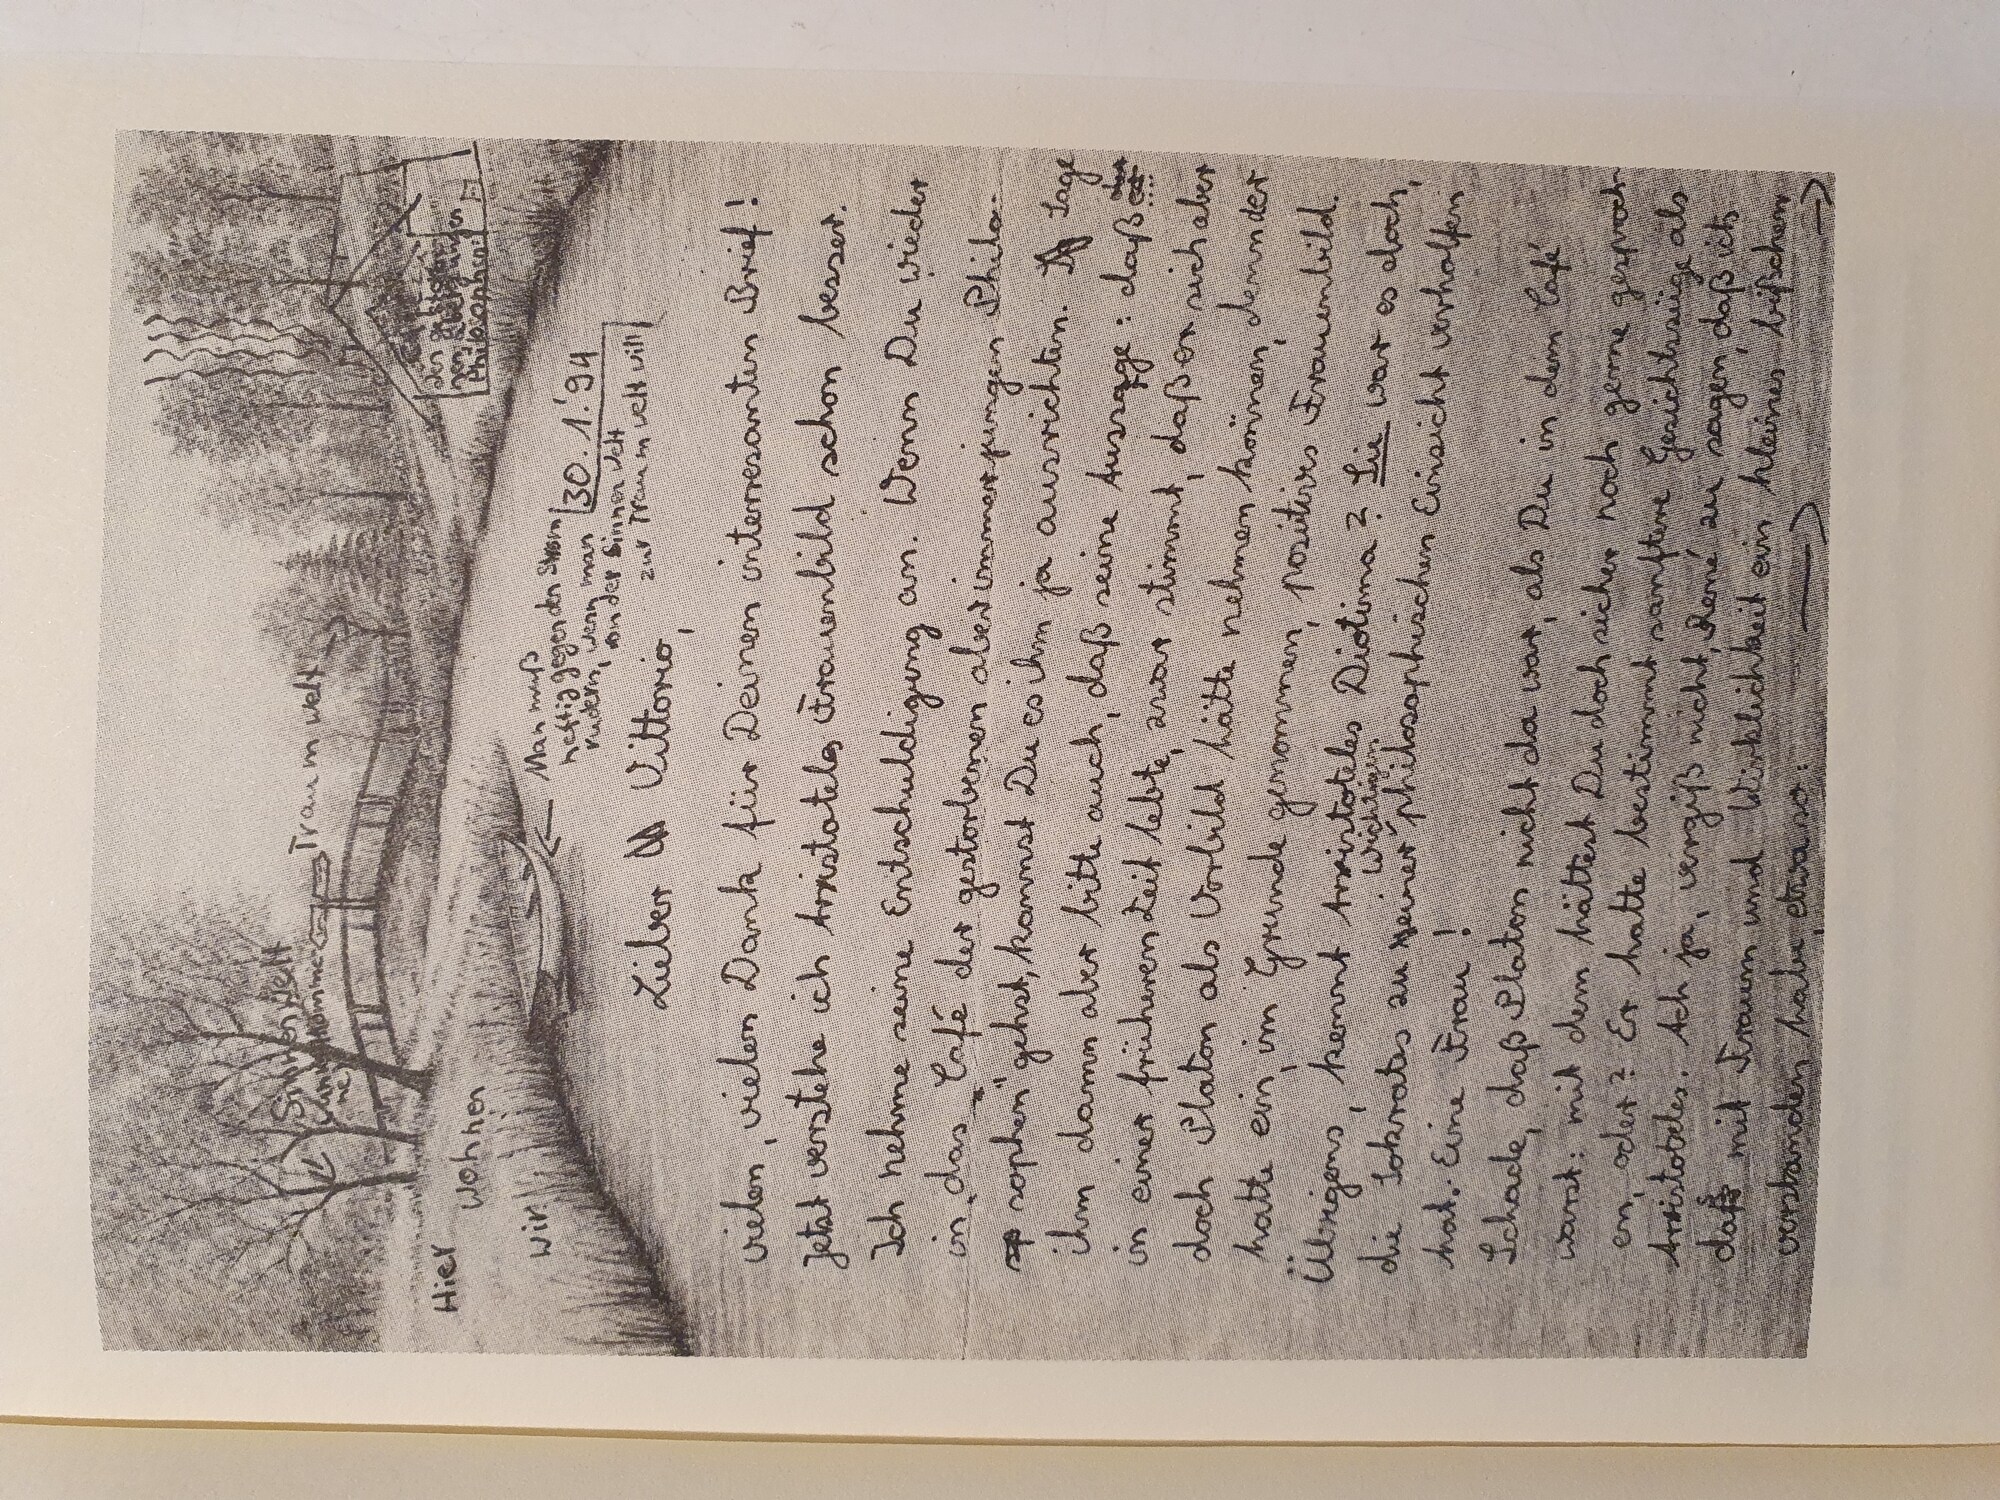 Sinnenwelt
Traumwelt
Hier
wohnen
wir!
Man muß
heftig gegen den Strom
rudern, wenn man
von der Sinnenwelt
zur Traumwelt will
30.1.'94
Café
der gestorbenen
Philosophen
Lieber Vittorio,
vielen, vielen Dank für Deinen interresanten Brief!
Jetzt verstehe ich Aristoteles Frauenbild schon besser.
Ich nehme seine Entschuldigung an. Wenn Du wieder
in das "Café der gestorbenen aber immerjungen Philo-
sophen" gehst, kannst Du es ihm ja ausrichten. Sage
ihm dann aber bitte auch, daß seine Aussage: daß er
in einer früheren Zeit lebte, zwar stimmt, daß er sich aber
doch Platon als Vorbild hätte nehmen können, denn der
hatte ein, im Grunde genommen, positives Frauenbild.
Übrigens, kennt Aristoteles Diotima? Sie war es doch,
die Sokrates zu seiner wichtigen philosophischen Einsicht verholfen
hat. Eine Frau!
Schade, daß Platon nicht da war, als Du in dem Café
warst: mit dem hättest Du doch sicher noch gerne gesproch-
en, oder? Er hatte bestimmt sanftere Gesichtszüge als
Aristoteles. Ach ja, vergiß nicht, René zu sagen, daß ich
das mit Traum und Wirklichkeit ein kleines bißchen
verstanden habe, etwa so: